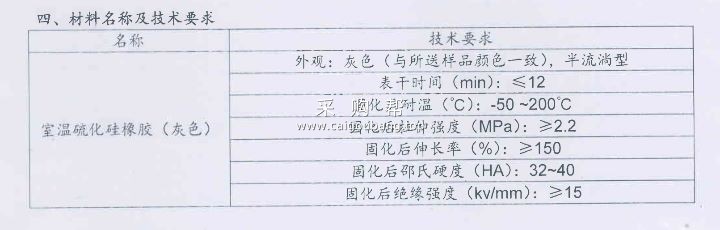 四、材料名称及技术要求
名称
技术要求
室温硫化硅橡胶（灰色）
外观：灰色（与所送样品颜色一致），半流淌型
表干时间（min）：≤12
耐温（℃）：-50 ~200℃
采购帮
固化后拉伸强度（MPa）：≥2.2
固化后伸长率（%）：≥150
固化后邵氏硬度（HA）：32~40
固化后绝缘强度（kv/mm）：≥15